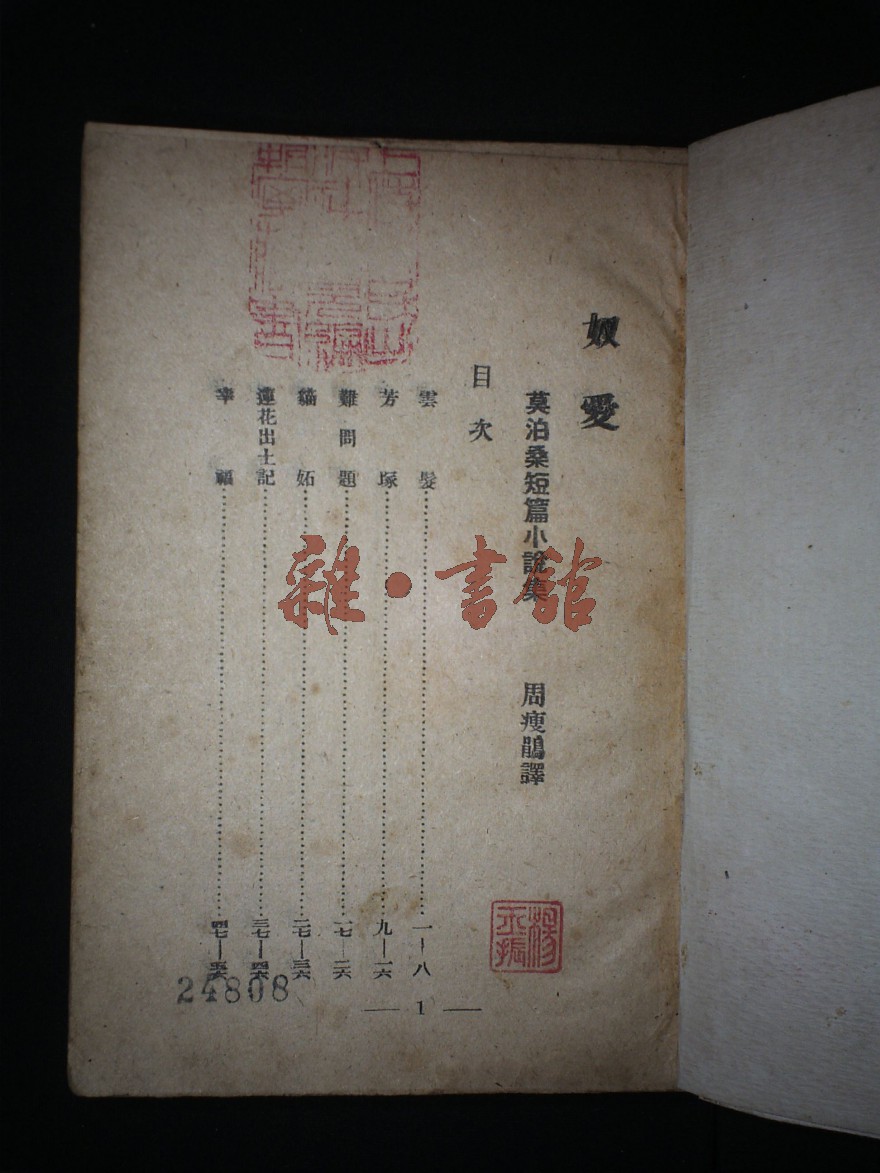 奴愛
莫泊桑短篇小說集
周瘦鵑譯
目次
雲髮……一—八
芳塚……九—一六
難問題……一七—二六
貓妬……二七—三六
蓮花出土記……三七—四六
幸福……四七—五六
— 1 —
24808
雜·書館